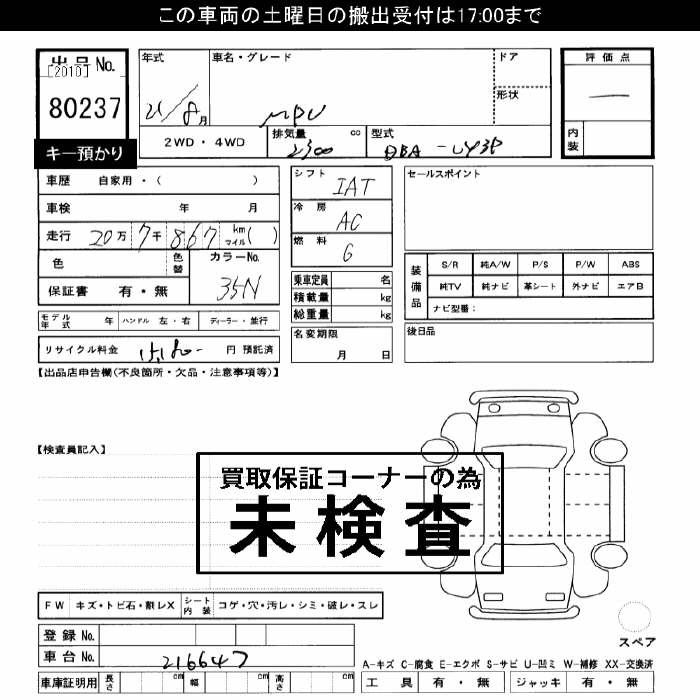 この車両の土曜日の搬出受付は17:00まで
出品No.
[2010]
80237
キー預かり
年式
21/8月
車名・グレード
MPV
ドア
形状
2WD・4WD
排気量 cc
2300
型式
DBA-LY3P
評価点
―
内装
車歴 自家用・( )
車検 年 月
走行 20万7千867 km マイル( )
色
色替
カラーNo.
35N
保証書 有・無
シフト
IAT
冷房
AC
燃料
G
乗車定員 名
積載量 kg
総重量 kg
セールスポイント
装備品
S/R 純A/W P/S P/W ABS
純TV 純ナビ 革シート 外ナビ エアB
ナビ型番:
モデル年式 年 ハンドル 左・右 ディーラー・並行
名変期限
月 日
後日品
リサイクル料金 15,180- 円 預託済
【出品店申告欄(不良箇所・欠品・注意事項等)】
【検査員記入】
買取保証コーナーの為
未検査
FW キズ・トビ石・割レX シート内装 コゲ・穴・汚レ・シミ・破レ・スレ
登録No.
車台No. 216647
車庫証明用 長さ cm 幅 cm 高さ cm
スペア
A-キズ C-腐食 E-エクボ S-サビ U-凹ミ W-補修 XX-交換済
工具 有・無 ジャッキ 有・無